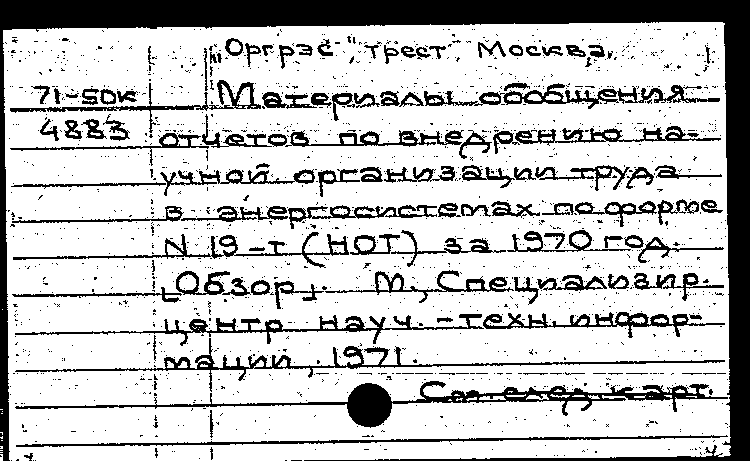 "Оргрэс", трест, Москва.
71-50к Материалы обобщения
4883 отчетов по внедрению на-
учной организации труда
в энергосистемах по форме
N 19-т (НОТ) за 1970 год.
[Обзор]. М., Специализир.
центр науч.-техн. инфор-
мации, 1971.
См. след. карт.